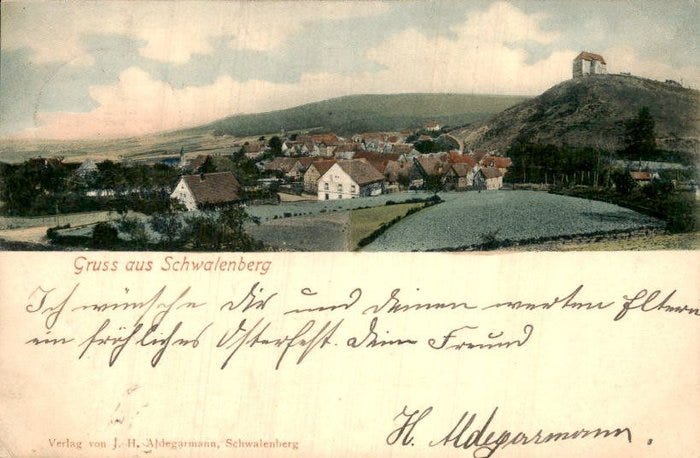 Gruss aus Schwalenberg
Ich wünsche Dir und deinen werten Eltern
ein fröhliches Osterfest. Dein Freund
H. Aldegarmann.
Verlag von J. H. Aldegarmann, Schwalenberg